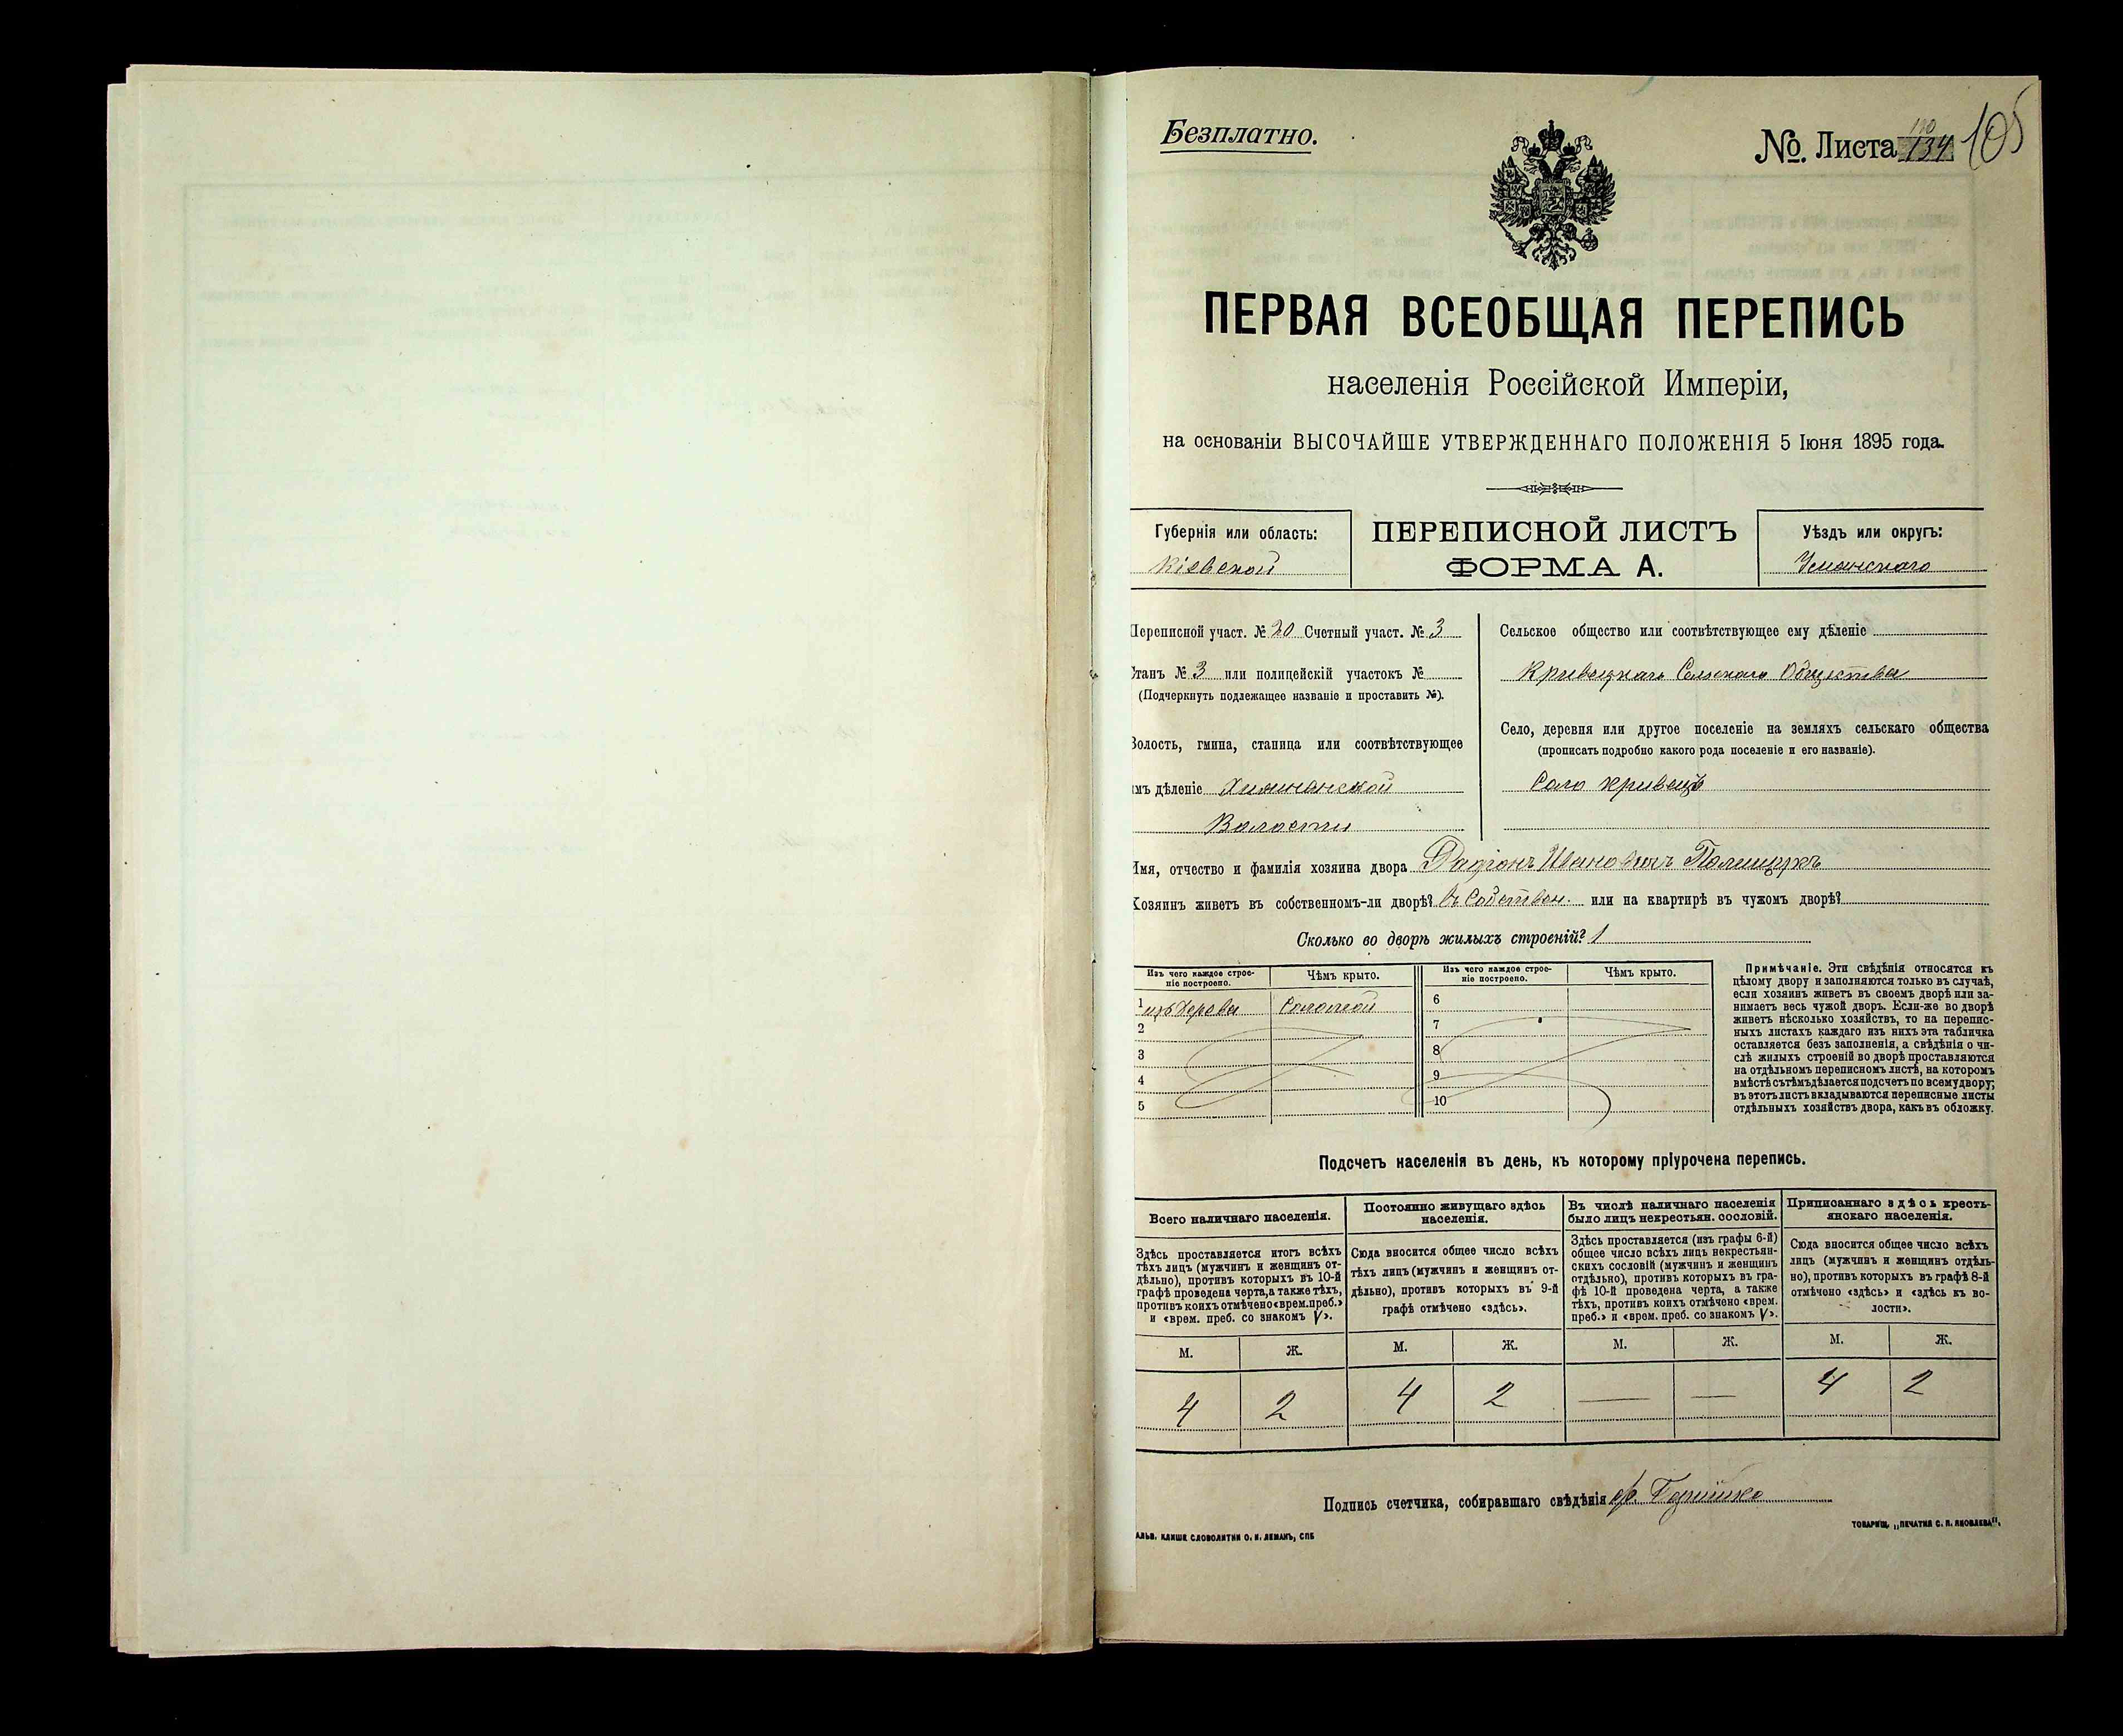 Безплатно.
№. Листа 134 110 105
ПЕРВАЯ ВСЕОБЩАЯ ПЕРЕПИСЬ
населенія Россійской Имперіи,
на основаніи ВЫСОЧАЙШЕ УТВЕРЖДЕННАГО ПОЛОЖЕНІЯ 5 Іюня 1895 года.
Губернія или область:
Кіевской
ПЕРЕПИСНОЙ ЛИСТЪ
ФОРМА А.
Уѣздъ или округъ:
Уманскаго
Переписной участ. № 20 Счетный участ. № 3
Станъ № 3 или полицейскій участокъ №
(Подчеркнуть подлежащее названіе и проставить №).
Волость, гмина, станица или соотвѣтствующее
имъ дѣленіе
Волости
Сельское общество или соотвѣтствующее ему дѣленіе
Кривецкаго Сельскаго Общества
Село, деревня или другое поселеніе на земляхъ сельскаго общества
(прописать подробно какого рода поселеніе и его названіе).
Село Кривецъ
Имя, отчество и фамилія хозяина двора Радіонъ Ивановичъ
Хозяинъ живетъ въ собственномъ-ли дворѣ? или на квартирѣ въ чужомъ дворѣ?
Сколько во дворѣ жилыхъ строеній? 1
Изъ чего каждое строе-
ніе построено.
Чѣмъ крыто.
Изъ чего каждое строе-
ніе построено.
Чѣмъ крыто.
1 изъ дерева Соломой
2
3
4
5
6
7
8
9
10
Примѣчаніе. Эти свѣдѣнія относятся къ
цѣлому двору и заполняются только въ случаѣ,
если хозяинъ живетъ въ своемъ дворѣ или за-
нимаетъ весь чужой дворъ. Если-же во дворѣ
живетъ нѣсколько хозяйствъ, то на перепис-
ныхъ листахъ каждаго изъ нихъ эта табличка
оставляется безъ заполненія, а свѣдѣнія о чи-
слѣ жилыхъ строеній во дворѣ проставляются
на отдѣльномъ переписномъ листѣ, на которомъ
вмѣстѣ съ тѣмъ дѣлается подсчетъ по всему двору;
въ этотъ листъ вкладываются переписные листы
отдѣльныхъ хозяйствъ двора, какъ въ обложку.
Подсчетъ населенія въ день, къ которому пріурочена перепись.
Всего наличнаго населенія.
Здѣсь проставляется итогъ всѣхъ
тѣхъ лицъ (мужчинъ и женщинъ от-
дѣльно), противъ которыхъ въ 10-й
графѣ проведена черта, а также тѣхъ,
противъ коихъ отмѣчено «врем. преб.»
и «врем. преб. со знакомъ V».
М. Ж.
4 2
Постоянно живущаго здѣсь
населенія.
Сюда вносится общее число всѣхъ
тѣхъ лицъ (мужчинъ и женщинъ от-
дѣльно), противъ которыхъ въ 9-й
графѣ отмѣчено «здѣсь».
М. Ж.
4 2
Въ числѣ наличнаго населенія
было лицъ некрестьян. сословій.
Здѣсь проставляется (изъ графы 6-й)
общее число всѣхъ лицъ некрестьян-
скихъ сословій (мужчинъ и женщинъ
отдѣльно), противъ которыхъ въ гра-
фѣ 10-й проведена черта, а также
тѣхъ, противъ коихъ отмѣчено «врем.
преб.» и «врем. преб. со знакомъ V».
М. Ж.
— —
Приписаннаго здѣсь кресть-
янскаго населенія.
Сюда вносится общее число всѣхъ
лицъ (мужчинъ и женщинъ отдѣль-
но), противъ которыхъ въ графѣ 8-й
отмѣчено «здѣсь» и «здѣсь къ во-
лости».
М. Ж.
4 2
Подпись счетчика, собиравшаго свѣдѣнія
АЛЬВ. КЛИШЕ СЛОВОЛИТНИ О. И. ЛЕМАНЪ, СПБ
ТОВАРИЩ. „ПЕЧАТНЯ С. П. ЯКОВЛЕВА".